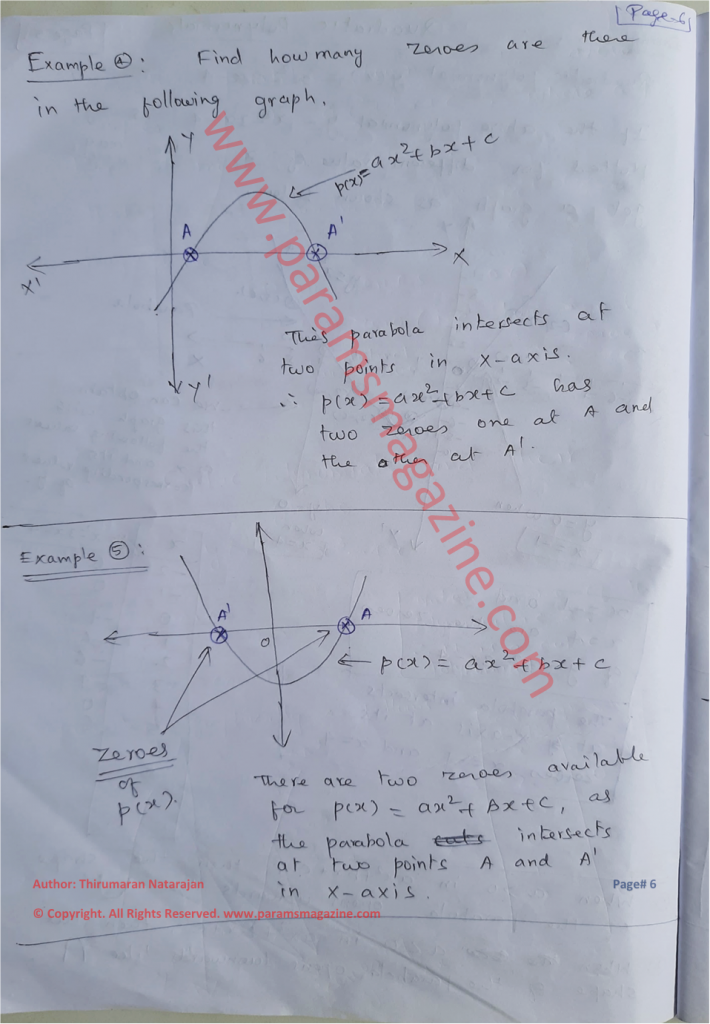 Page-6
Example ④: Find how many zeroes are there
in the following graph.
Y
p(x)=ax²+bx+c
A
A'
X'
X
Y'
This parabola intersects at
two points in x-axis.
∴ p(x)=ax²+bx+c has
two zeroes one at A and
the other at A'.
Example ⑤:
A'
A
O
p(x) = ax²+bx+c
Zeroes
of
p(x).
There are two zeroes available
for p(x) = ax²+bx+c, as
the parabola cuts intersects
at two points A and A'
in x-axis.
Author: Thirumaran Natarajan
Page# 6
© Copyright. All Rights Reserved. www.paramsmagazine.com
www.paramsmagazine.com